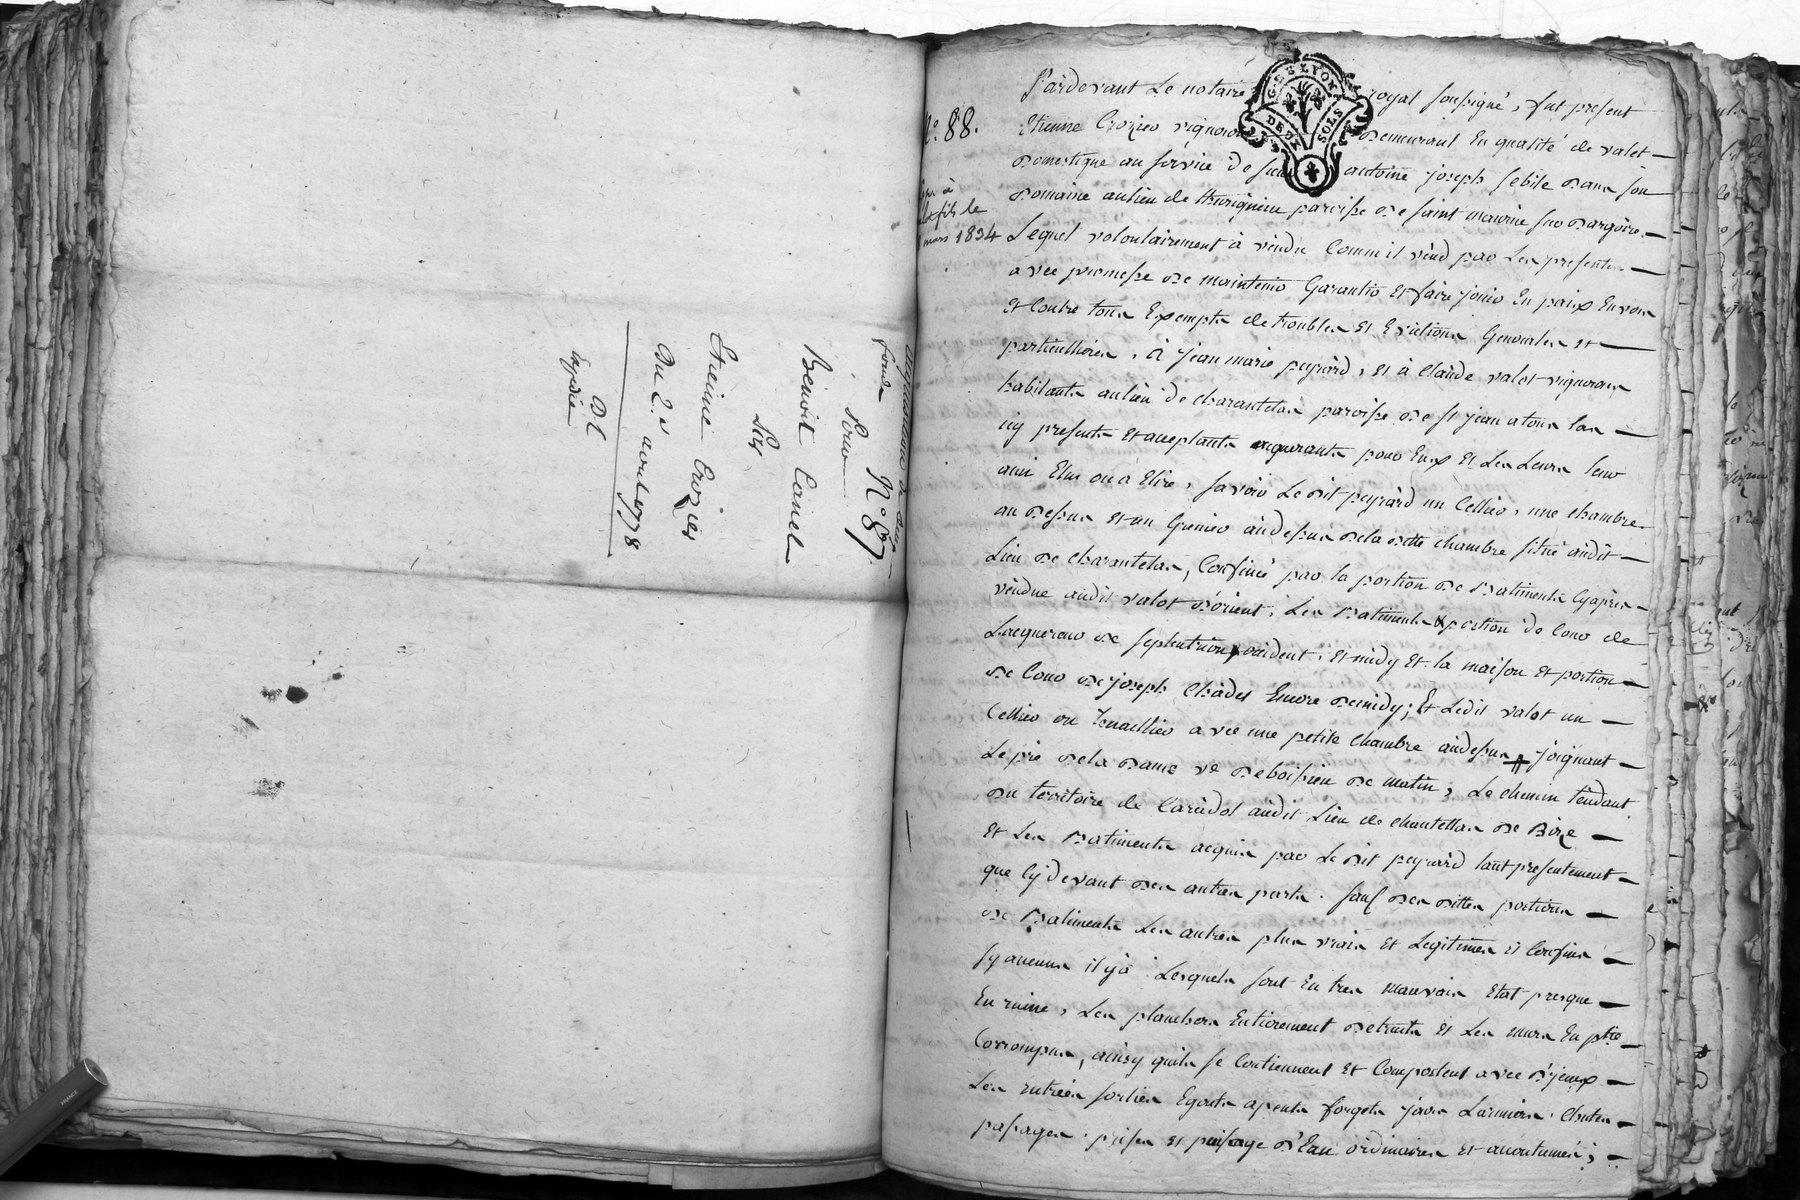 acquisition de deux
fonds
N° 87
Pour
Benoit Canel
Les
Etienne Crozier
Du 2e avril 1778
Dl
Expédié
N° 88.
fils le
mars 1834
G. DE LYON
DEUX SOLS
Pardevant Le notaire royal soussigné, fut present
Etienne Crozier vigneron Demeurant En qualité de valet
Domestique au service de sieur antoine joseph sebile Dans son
Domaine au lieu de paroisse De saint maurice sur Dargoire
Lequel volontairement à vendu Comm'il vend par Les presentes
avec promesse De maintenir Garantir Et faire jouir En paix Envers
Et Contre tous Exempts de troubles Et Evictions Generales Et
particullieres, à jean marie peyrard, Et à Claude valot vignerons
habitants au lieu de Charantelas paroisse De st jean a tous las
icy presents Et acceptants acquerants pour Eux Et Les Leurs leur
ami Elus ou à Elire, savoir Le Dit peyrard un Cellier, une chambre
au Dessus Et un Grenier au dessus De la Ditte chambre situé audit
Lieu De Charantelas, Confinés par la portion De Batiments Cy après
vendue audit valot D'orient, Les Batiments & portion de Cour de
L'acquereur De septentrion, occident, Et midy Et la maison Et portion
De Cour De joseph Encore De midy; Et Ledit valot un
Cellier ou avec une petite Chambre au dessus # joignant
Le pré De la Dame ve De boissieu De matin, Le chemin tendant
Du territoire de audit Lieu de chantellas De Bize
Et Les Batiments acquis par Le Dit peyrard tant presentement
que Cy devant Des autres parts. sauf Des Dittes portions
De Batiments Les autres plus vrais Et Legitimes Et Confins
sy aucuns il y à. Lesquels sont En tres mauvais Etat presque
En ruine, Les planchers Entierement Detruits Et Les murs En ptie
Corrompus, ainsy qu'ils se Contiennent Et Comportent avec D'yceux
Les Entrées sorties Egouts apents forgets jours Larmiers. Chutes
passages. prises Et puisage D'Eau ordinaires Et accoutumés;